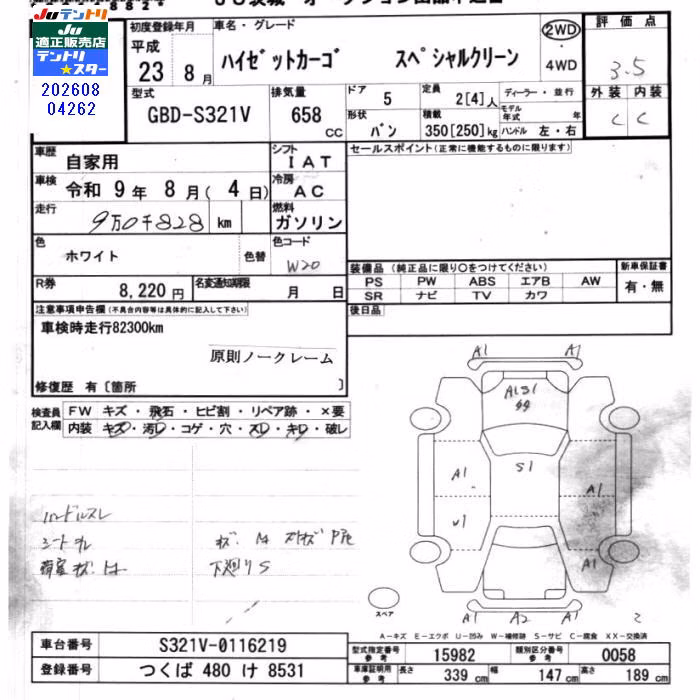 JU テントリ
JU適正販売店
テントリ
★スター
202608
04262
初度登録年月
平成
23 8 月
車名・グレード
ハイゼットカーゴ スペシャルクリーン
2WD
・
4WD
評価点
3.5
外装 内装
C C
型式
GBD-S321V
排気量
658
CC
ドア
5
定員
2[4]人
形状
バン
積載
350[250]kg
ディーラー・並行
モデル年式 年
ハンドル 左・右
車歴
自家用
シフト
I A T
車検
令和 9 年 8 月( 4 日)
冷房
A C
走行
9万0千828 km
燃料
ガソリン
色
ホワイト
色替
色コード
W20
R券
8,220 円
名変通知期限
月 日
セールスポイント(正常に機能するものに限ります)
装備品 (純正品に限り○をつけてください)
PS PW ABS エアB AW
SR ナビ TV カワ
新車保証書
有・無
後日品
注意事項申告欄(不具合内容等は具体的に記入して下さい)
車検時走行82300km
原則ノークレーム
修復歴 有〔箇所 〕
検査員
記入欄
FW キズ・飛石・ヒビ割・リペア跡・×要
内装 キズ・汚レ・コゲ・穴・スレ・キレ・破レ
ハンドルスレ
下廻りS
A1 A1
A1S1
S1
A1
A1
A1
A1 A2 A1
スペア
A-キズ E-エクボ U-凹み W-補修跡 S-サビ C-腐食 XX-交換済
車台番号
S321V-0116219
登録番号
つくば 480 け 8531
型式指定番号
参考
15982
類別区分番号
参考
0058
車庫証明用
参考
長さ 339 cm 幅 147 cm 高さ 189 cm